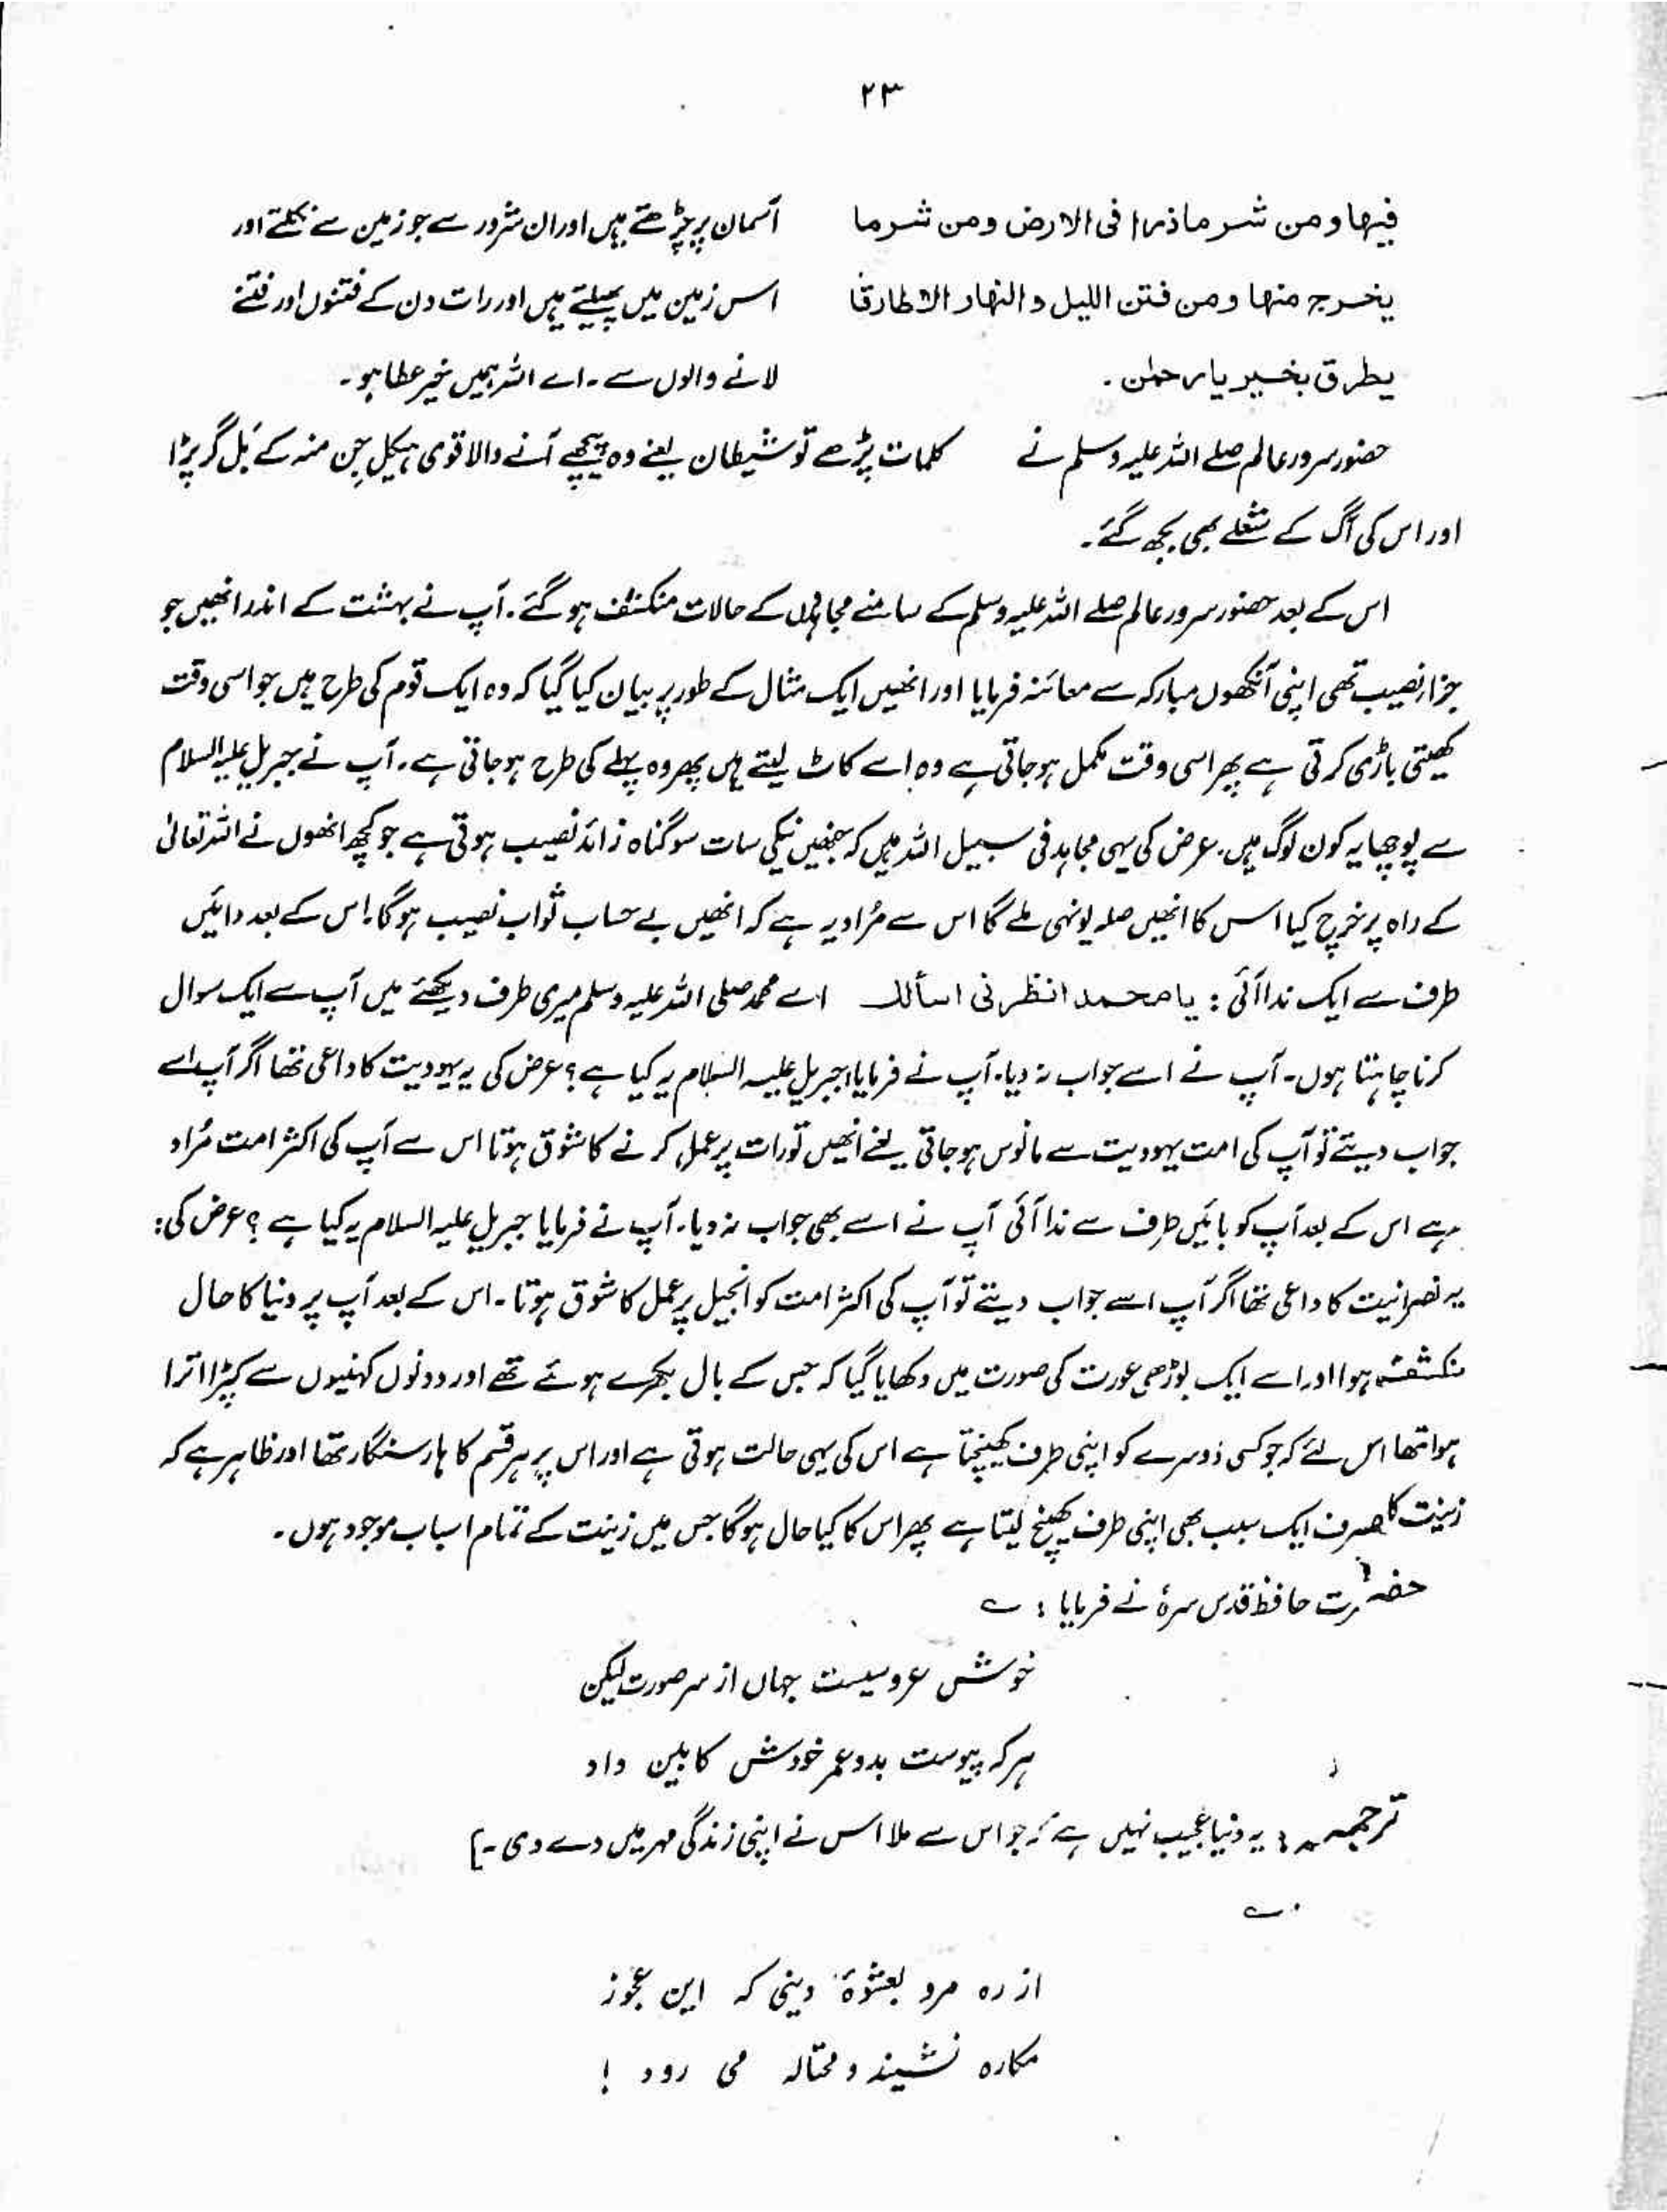 ۲۳
فیہا ومن شر ما ذرا فی الارض ومن شر ما آسمان پر چڑھتے ہیں اور ان شرور سے جو زمین سے نکلتے اور
یخرج منہا ومن فتن اللیل والنہار الا طارقا اس زمین میں پھیلتے ہیں اور رات دن کے فتنوں اور فتنے
یطرق بخیر یا رحمٰن ۔ لانے والوں سے ۔ اے اللہ ہمیں خیر عطا ہو ۔
حضور سرور عالم صلے اللہ علیہ وسلم نے کلمات پڑھے تو شیطان یعنے وہ پیچھے آنے والا قوی ہیکل جِن منہ کے بَل گر پڑا
اور اس کی آگ کے شعلے بھی بجھ گئے ۔
اس کے بعد حضور سرور عالم صلے اللہ علیہ وسلم کے سامنے مجاہدوں کے حالات منکشف ہو گئے ۔ آپ نے بہشت کے اندر انھیں جو
جزا نصیب تھی اپنی آنکھوں مبارکہ سے معائنہ فرمایا اور انھیں ایک مثال کے طور پر بیان کیا گیا کہ وہ ایک قوم کی طرح ہیں جو اسی وقت
کھیتی باڑی کرتی ہے پھر اسی وقت مکمل ہو جاتی ہے وہ اسے کاٹ لیتے ہیں پھر وہ پہلے کی طرح ہو جاتی ہے ۔ آپ نے جبریل علیہ السلام
سے پوچھا یہ کون لوگ ہیں ۔ عرض کی یہی مجاہد فی سبیل اللہ ہیں کہ جنھیں نیکی سات سو گناہ زائد نصیب ہوتی ہے جو کچھ انھوں نے اللہ تعالیٰ
کے راہ پر خرچ کیا اس کا انھیں صلہ یونہی ملے گا اس سے مُراد یہ ہے کہ انھیں بے حساب ثواب نصیب ہوگا ۔ اس کے بعد دائیں
طرف سے ایک ندا آئی : یا محمد انظرنی اسألک اے محمد صلی اللہ علیہ وسلم میری طرف دیکھئے میں آپ سے ایک سوال
کرنا چاہتا ہوں ۔ آپ نے اسے جواب نہ دیا ۔ آپ نے فرمایا اجبریل علیہ السلام یہ کیا ہے ؟ عرض کی یہ یہودیت کا داعی تھا اگر آپ اسے
جواب دیتے تو آپ کی امت یہودیت سے مانوس ہو جاتی یعنے انھیں تورات پر عمل کرنے کا شوق ہوتا اس سے آپ کی اکثر امت مُراد
ہے اس کے بعد آپ کو بائیں طرف سے ندا آئی آپ نے اسے بھی جواب نہ دیا ۔ آپ نے فرمایا جبریل علیہ السلام یہ کیا ہے ؟ عرض کی :
یہ نصرانیت کا داعی تھا اگر آپ اسے جواب دیتے تو آپ کی اکثر امت کو انجیل پر عمل کا شوق ہوتا ۔ اس کے بعد آپ پر دنیا کا حال
منکشف ہوا اور اسے ایک بوڑھی عورت کی صورت میں دکھایا گیا کہ جس کے بال بکھرے ہوئے تھے اور دونوں کہنیوں سے کپڑا اترا
ہوا تھا اس لئے کہ جو کسی دوسرے کو اپنی طرف کھینچتا ہے اس کی یہی حالت ہوتی ہے اور اس پر ہر قسم کا ہار سنگار تھا اور ظاہر ہے کہ
زینت کا صرف ایک سبب بھی اپنی طرف کھینچ لیتا ہے پھر اس کا کیا حال ہوگا جس میں زینت کے تمام اسباب موجود ہوں ۔
حضرت حافظ قدس سرہٗ نے فرمایا : ؎
خوش عروسیست جہاں از سر صورت لیکن
ہر کہ پیوست بدو عمر خودش کابین داد
ترجمہ : یہ دنیا عجیب نہیں ہے کہ جو اس سے ملا اس نے اپنی زندگی مہر میں دے دی ۔]
؎
از رہ مرو بعشوۂ دینی کہ این عجوز
مکارہ نشیند و محتالہ می رود !